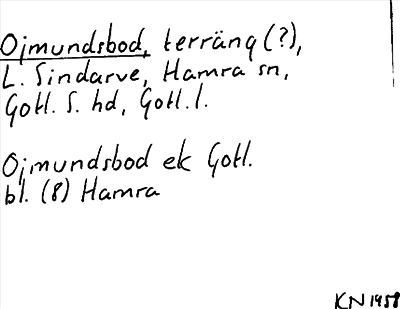 Ojmundsbod, terräng (?),
L. Sindarve, Hamra sn,
Gotl. S. hd, Gotl. l.
Ojmundsbod ek Gotl.
bl. (8) Hamra
KN 1958